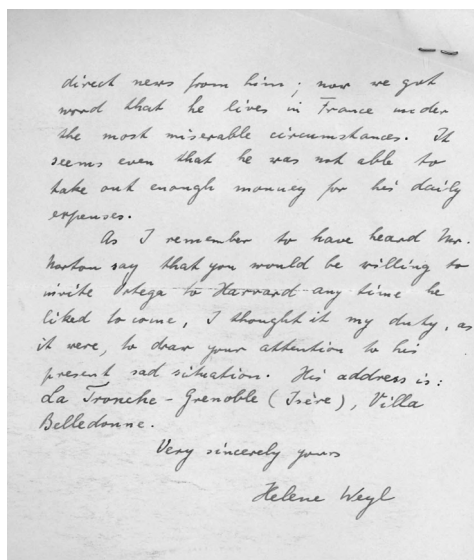 direct news from him; now we got
word that he lives in France under
the most miserable circumstances. It
seems even that he was not able to
take out enough monney for his daily
expenses.
As I remember to have heard Mr.
Norton say that you would be willing to
invite Ortega to Harvard any time he
liked to come, I thought it my duty, as
it were, to draw your attention to his
present sad situation. His address is:
La Tronche - Grenoble (Isère), Villa
Belledonne.
Very sincerely yours
Helene Weyl